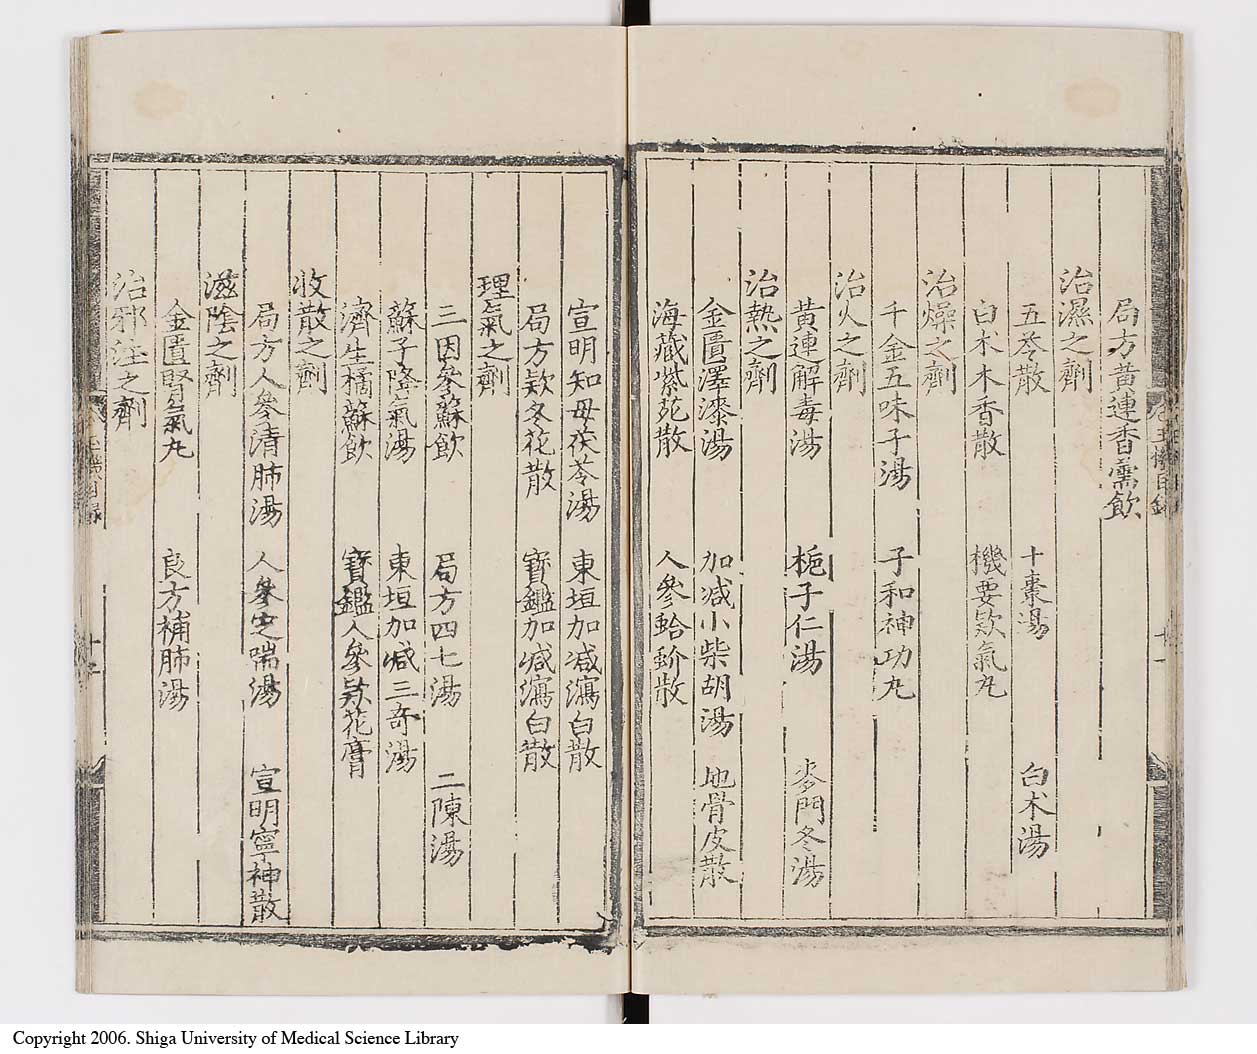 局方黄連香薷飲
治濕之劑
五苓散 十棗湯 白朮湯
白朮木香散 機要欬氣丸
治燥之劑
千金五味子湯 子和神功丸
治火之劑
黄連解毒湯 梔子仁湯 麥門冬湯
治熱之劑
金匱澤漆湯 加减小柴胡湯 地骨皮散
海藏紫苑散 人參蛤蚧散
宣明知母茯苓湯 東垣加减瀉白散
局方欵冬花散 寶鑑加减瀉白散
理氣之劑
三因參蘇飲 局方四七湯 二陳湯
蘇子降氣湯 東垣加减三奇湯
濟生橘蘇飲 寶鑑人參欵花膏
收散之劑
局方人參清肺湯 人參定喘湯 宣明寧神散
滋陰之劑
金匱腎氣丸 良方補肺湯
治邪注之劑
Copyright 2006. Shiga University of Medical Science Library